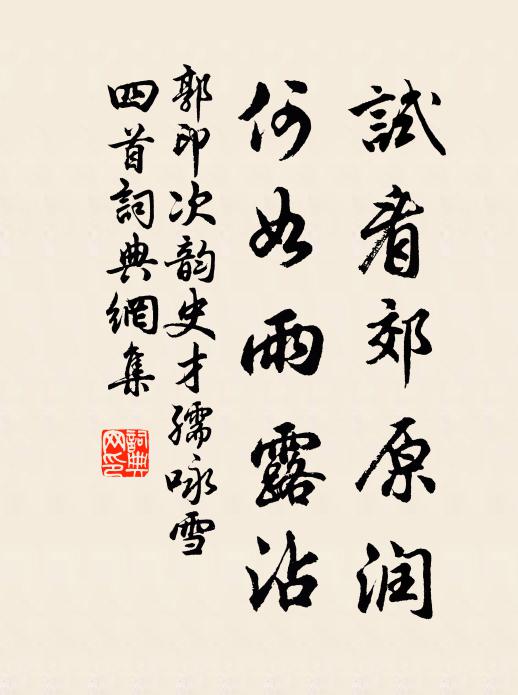 試看郊原润
何如雨露沾
郭印次韵史才孺咏雪
四首詞典網集
詞典
网印